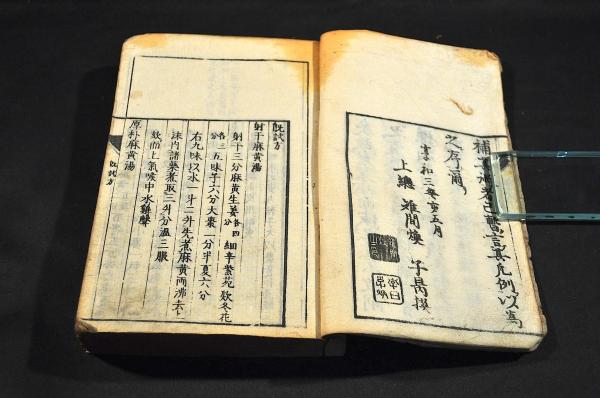 補言其凡例以為
之序爾
享和三癸亥五月
上總 間煥 子
既試方
射干麻黄湯
射干三分麻黄生姜各四分細辛紫苑欵冬花
各三分五味子六分大棗一分半夏六分
右九味以水一斗二升先煮麻黄両沸去上
沫内諸藥煮取三升分温三服
欬而上氣喉中水雞聲
厚朴麻黄湯
既試方